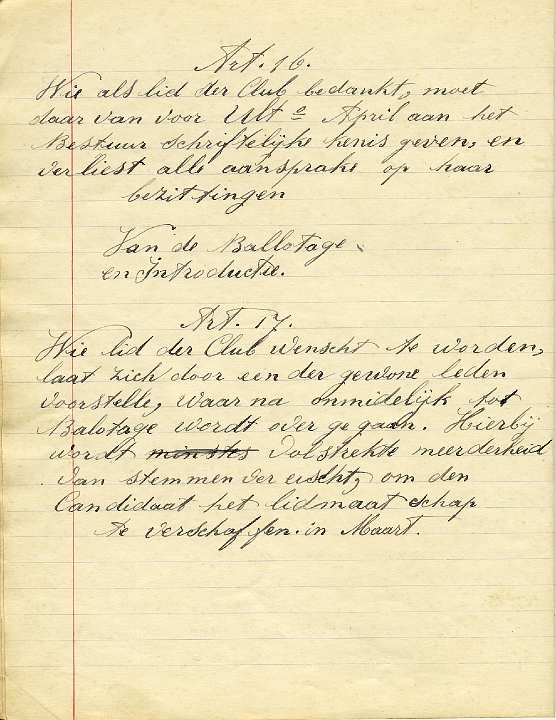 Art. 16.
Wie als lid der Club bedankt, moet
daar van voor Ult o April aan het
Bestuur schriftelijke kenis geven, en
verliest alle aansprake op haar
bezittingen
Van de Ballotage
en Introductie.
Art. 17.
Wie lid der Club wenscht te worden,
laat zich door een der gewone leden
voorstelle, waar na onmidelijk tot
Balotage wordt over ge gaan. Hierbij
wordt minstes volstrekte meerderheid
van stemmen ver eischt, om den
Candidaat het lidmaat schap
te verschaffen. in Maart.